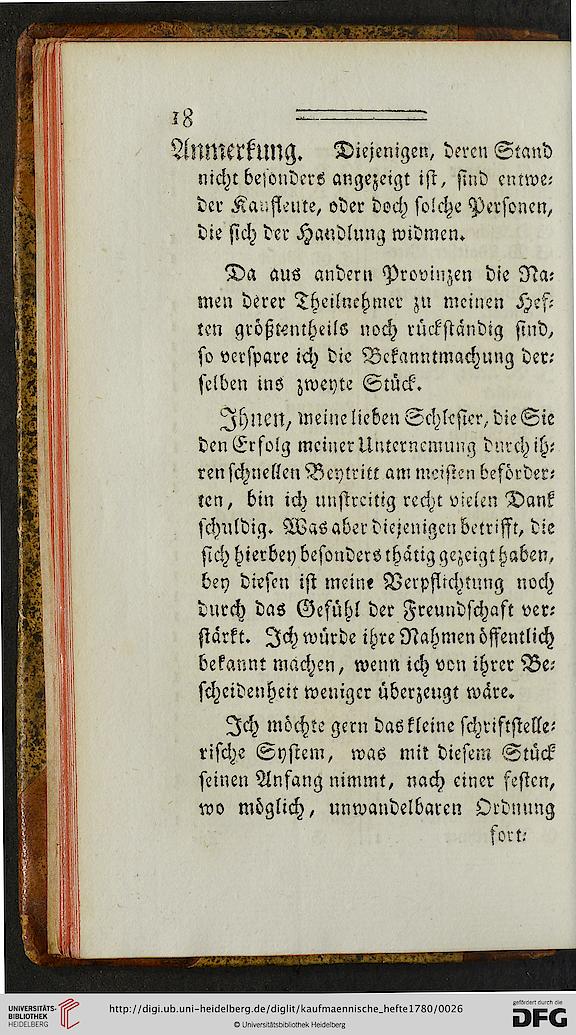 18
Anmerkung. Diejenigen, deren Stand
nicht besonders angezeigt ist, sind entwe-
der Kaufleute, oder doch solche Personen,
die sich der Handlung widmen.
Da aus andern Provinzen die Na-
men derer Theilnehmer zu meinen Hef-
ten größtentheils noch rückständig sind,
so verspare ich die Bekanntmachung der-
selben ins zweyte Stück.
Ihnen, meine lieben Schlesier, die Sie
den Erfolg meiner Unternemung durch ih-
ren schnellen Beytritt am meisten beförder-
ten, bin ich unstreitig recht vielen Dank
schuldig. Was aber diejenigen betrifft, die
sich hierbey besonders thätig gezeigt haben,
bey diesen ist meine Verpflichtung noch
durch das Gefühl der Freundschaft ver-
stärkt. Ich würde ihre Nahmen öffentlich
bekannt machen, wenn ich von ihrer Be-
scheidenheit weniger überzeugt wäre.
Ich möchte gern das kleine schriftstelle-
rische System, was mit diesem Stück
seinen Anfang nimmt, nach einer festen,
wo möglich, unwandelbaren Ordnung
fort-
UNIVERSITÄTS-
BIBLIOTHEK
HEIDELBERG
http://digi.ub.uni-heidelberg.de/diglit/kaufmaennische_hefte1780/0026
© Universitätsbibliothek Heidelberg
gefördert durch die
DFG